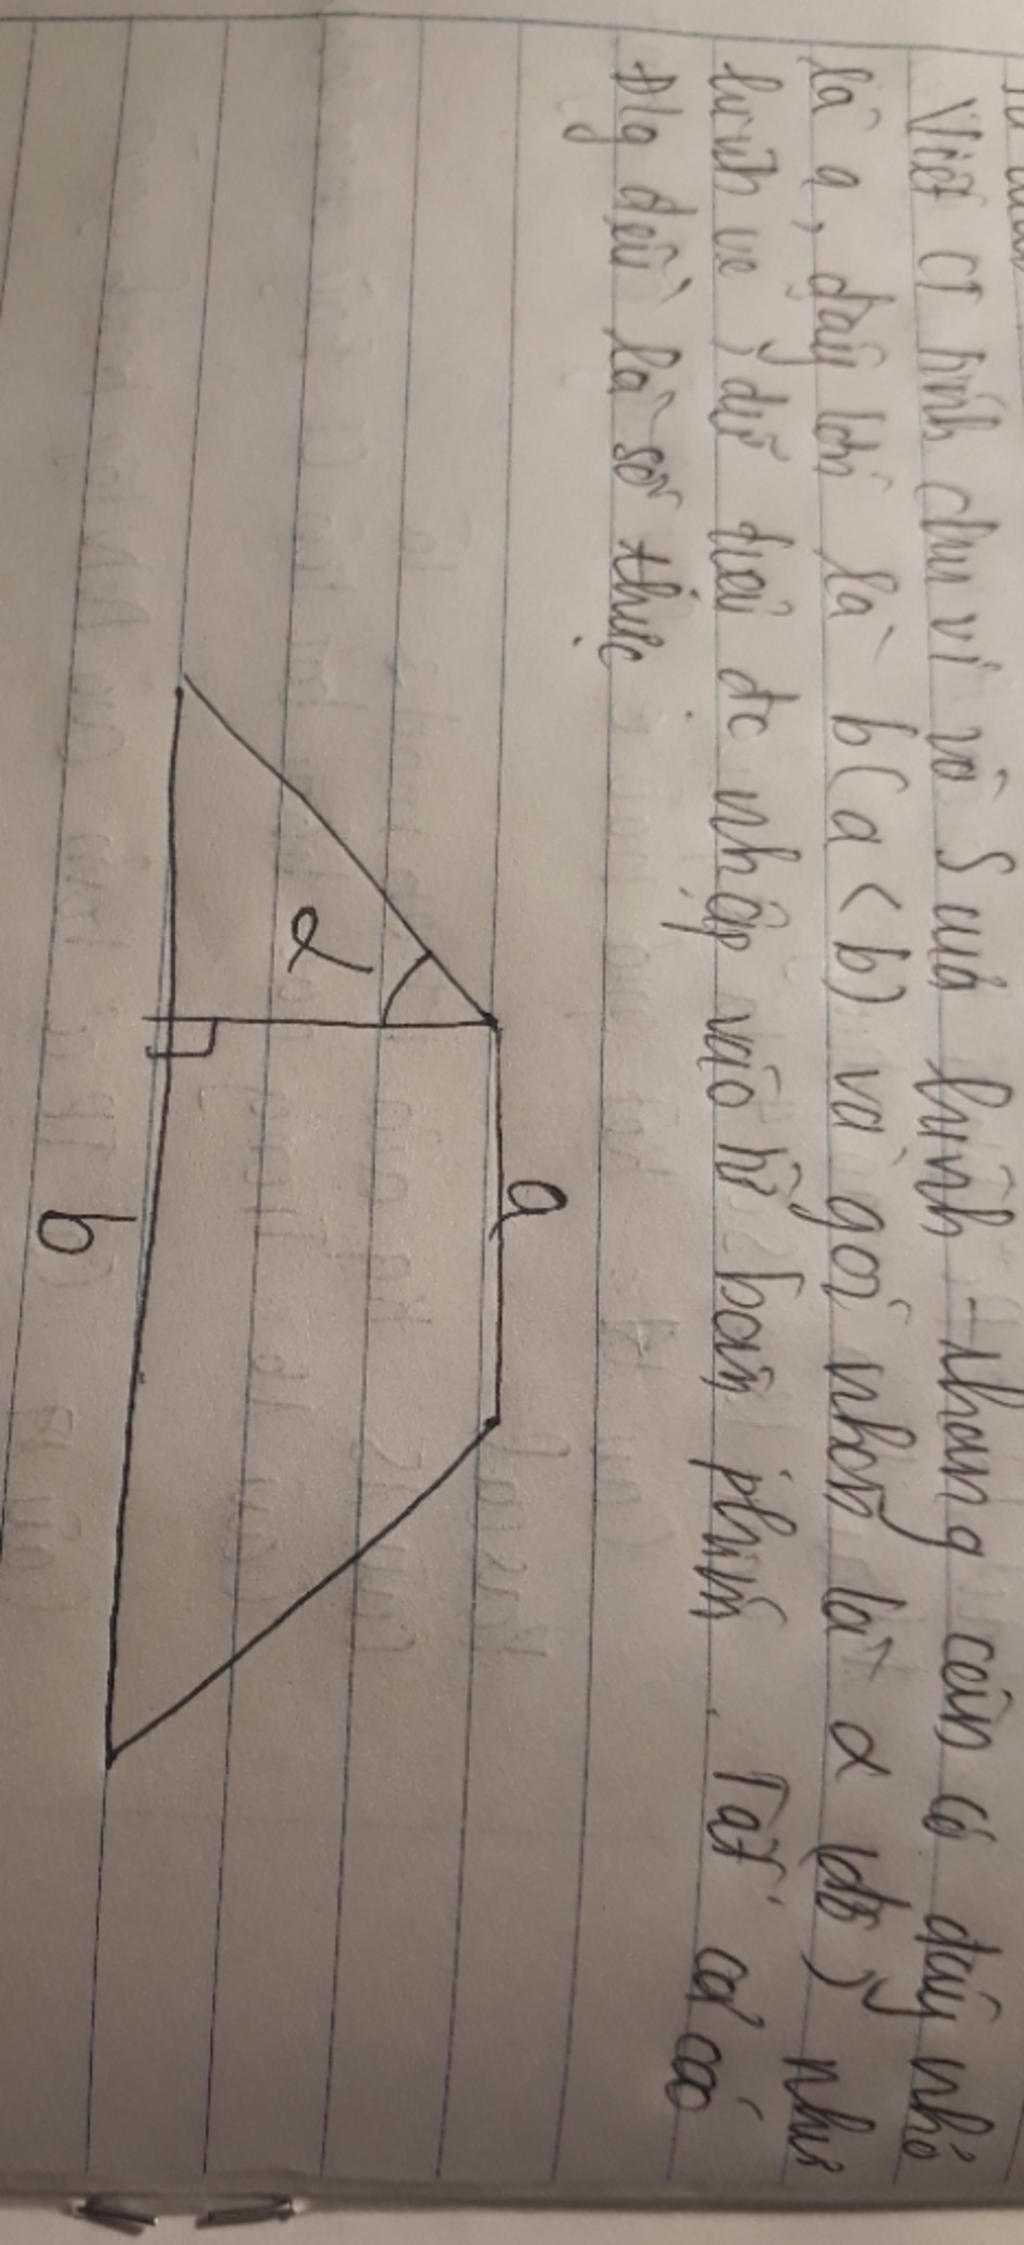 Viết CT tính chu vi và S của hình thang cân có đáy nhỏ
là a, đáy lớn là b (a < b) và gọi nhọn là α (độ) như
hình vẽ, dữ liệu đc nhập vào từ bàn phím. Tất cả các
Đlg đều là số thực
a
α
b